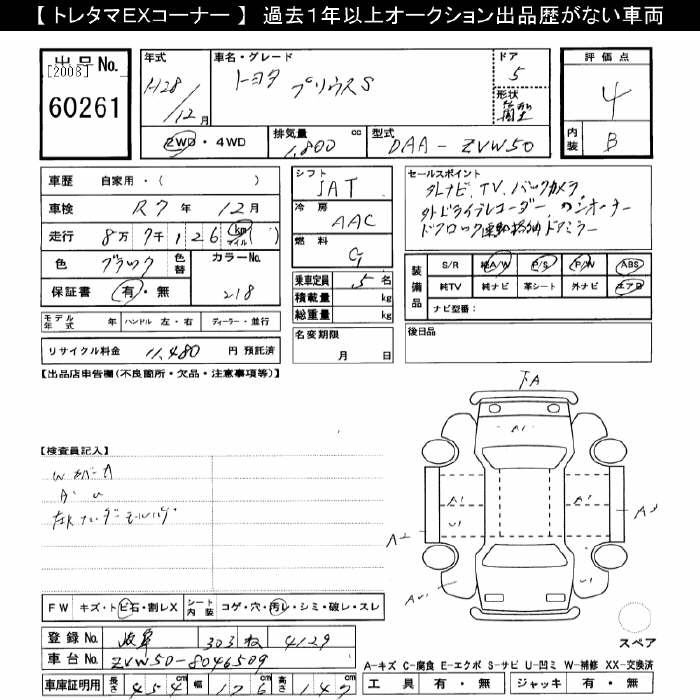 【 トレタマEXコーナー 】 過去１年以上オークション出品歴がない車両
出品 No.
[2008]
60261
年式
H28/12月
車名・グレード
トヨタ プリウスS
ドア
5
形状
評価点
4
内装
B
2WD・4WD
排気量 1,800 cc
型式 DAA-ZVW50
車歴 自家用・( )
車検 R7年 12月
走行 8万7千126 km マイル ( )
色 ブラック 色替
カラーNo. 218
保証書 有・無
モデル年式 年 ハンドル 左・右 ディーラー・並行
リサイクル料金 11,480 円 預託済
シフト
AT
冷房
AAC
燃料
G
乗車定員 5名
積載量 kg
総重量 kg
名変期限
月 日
セールスポイント
外ナビ、TV、バックカメラ
外ドライブレコーダー
ドアロック連動格納ドアミラー
装備品
S/R 純A/W P/S P/W ABS
純TV 純ナビ 革シート 外ナビ エアB
ナビ型番：
後日品
【出品店申告欄(不良箇所・欠品・注意事項等)】
【検査員記入】
下A
A1
A1
A1
U1
U1
A2
A3
AU1
FW キズ・トビ石・割レX
シート内装 コゲ・穴・汚レ・シミ・破レ・スレ
登録 No. 岐阜 303 ね 4129
車台 No. ZVW50-8046509
車庫証明用 長さ 454 cm 幅 176 cm 高さ 147 cm
スペア
A-キズ C-腐食 E-エクボ S-サビ U-凹ミ W-補修 XX-交換済
工具 有・無 ジャッキ 有・無